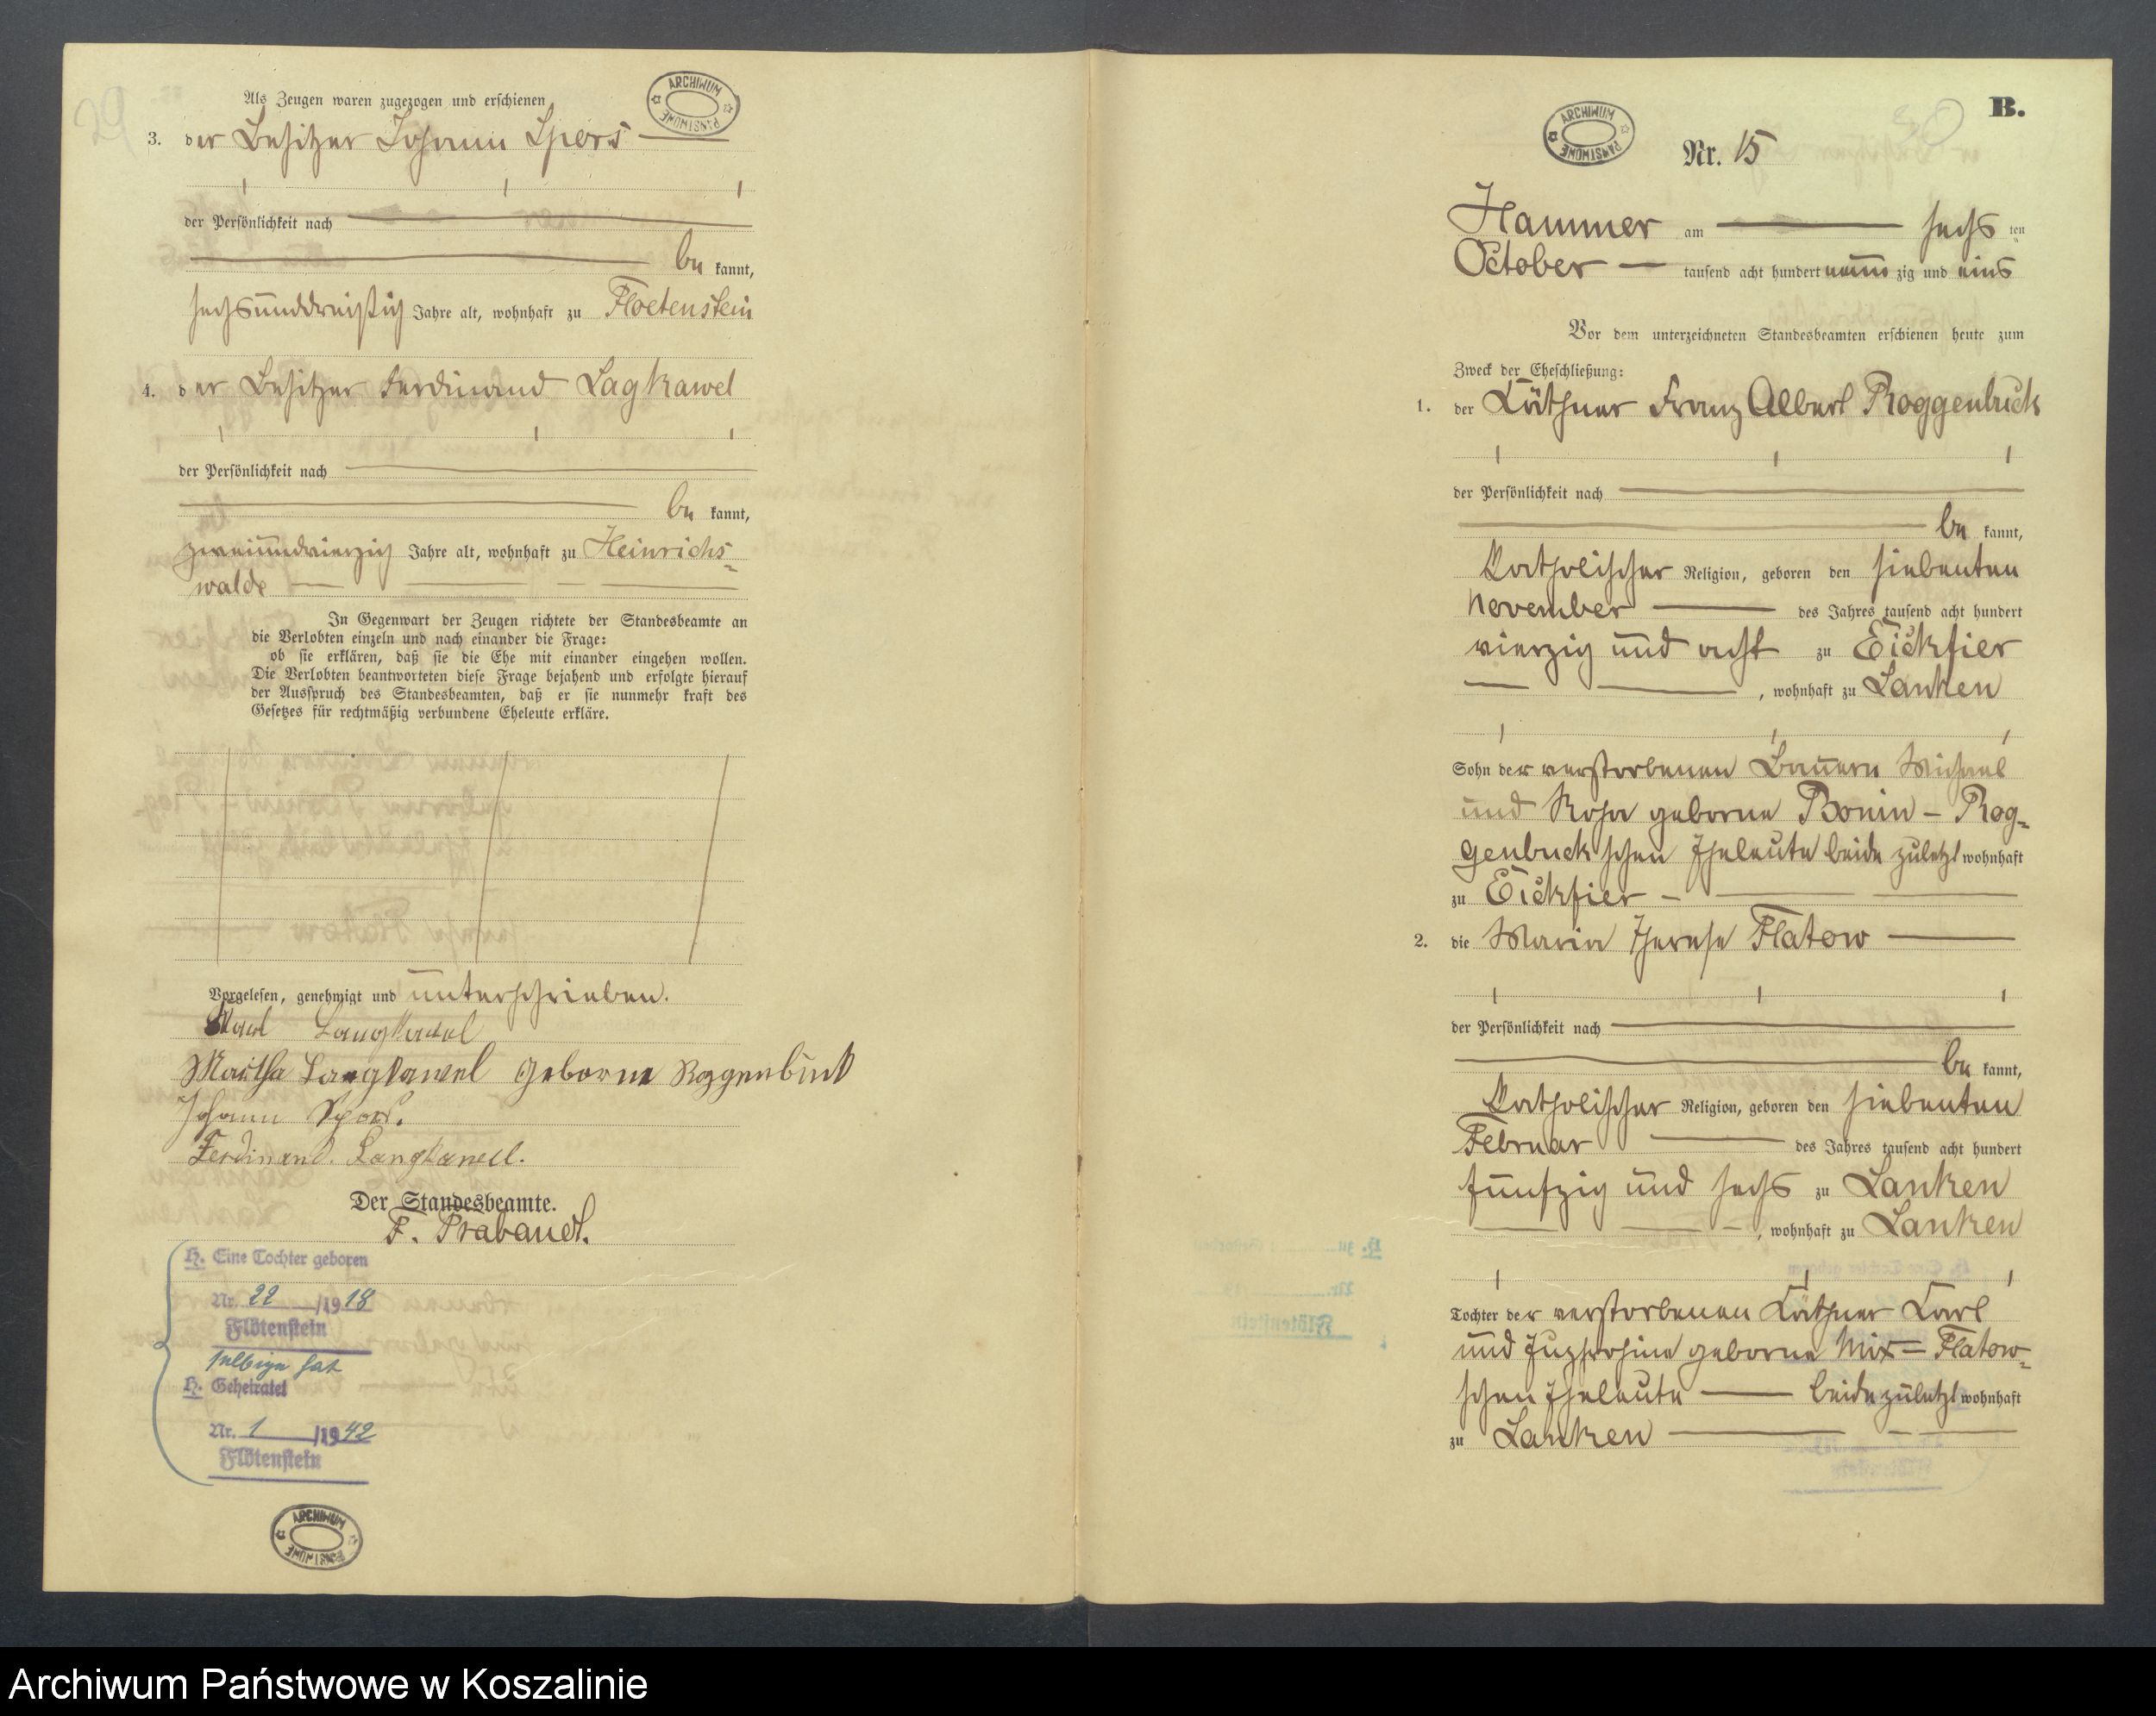 29
Als Zeugen waren zugezogen und erschienen
ARCHIWUM PAŃSTWOWE
3. der Besitzer Johann Spors
der Persönlichkeit nach
be kannt,
sechsunddreißig Jahre alt, wohnhaft zu Floetenstein
4. der Besitzer Ferdinand Lagkawel
der Persönlichkeit nach
be kannt,
zweiundvierzig Jahre alt, wohnhaft zu Heinrichs-
walde
In Gegenwart der Zeugen richtete der Standesbeamte an
die Verlobten einzeln und nach einander die Frage:
ob sie erklären, daß sie die Ehe mit einander eingehen wollen.
Die Verlobten beantworteten diese Frage bejahend und erfolgte hierauf
der Ausspruch des Standesbeamten, daß er sie nunmehr kraft des
Gesetzes für rechtmäßig verbundene Eheleute erkläre.
Vorgelesen, genehmigt und unterschrieben.
Karl Langkawel
Martha Langkawel geborne Roggenbuck
Johann Spors.
Ferdinand. Langkawell.
Der Standesbeamte.
F. Prabandt.
H. Eine Tochter geboren
Nr. 22 /1918
Flötenstein
selbige hat
H. Geheiratet
Nr. 1 /1942
Flötenstein
ARCHIWUM PAŃSTWOWE
30
B.
ARCHIWUM PAŃSTWOWE
Nr. 15
Hammer am sechs ten
October tausend acht hundert neun zig und eins
Vor dem unterzeichneten Standesbeamten erschienen heute zum
Zweck der Eheschließung:
1. der Käthner Franz Albert Roggenbuck
der Persönlichkeit nach
be kannt,
Katholischer Religion, geboren den siebenten
November des Jahres tausend acht hundert
vierzig und acht zu Eickfier
, wohnhaft zu Lanken
Sohn der verstorbenen Bauern Michael
und Rosa geborne Bonin - Rog-
genbuckschen Eheleute beide zuletzt wohnhaft
zu Eickfier
2. die Maria Therese Flatow
der Persönlichkeit nach
be kannt,
Katholischer Religion, geboren den siebenten
Februar des Jahres tausend acht hundert
fünfzig und sechs zu Lanken
, wohnhaft zu Lanken
Tochter der verstorbenen Käthner Carl
und Euphrosine geborne Mix - Flatow-
schen Eheleute beide zuletzt wohnhaft
zu Lanken
Archiwum Państwowe w Koszalinie